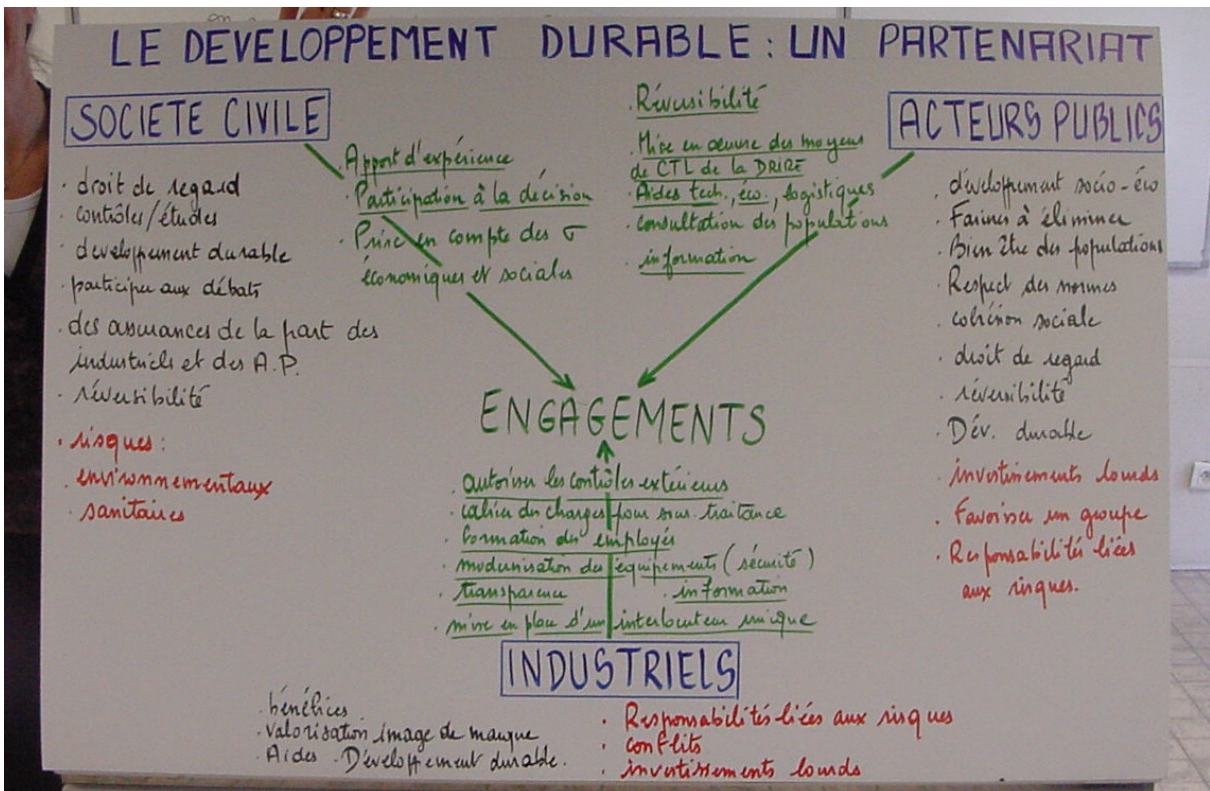 LE DEVELOPPEMENT DURABLE : UN PARTENARIAT
SOCIETE CIVILE
. droit de regard
. contrôles/études
. developpement durable
. participer aux débats
. des assurances de la part des
industriels et des A.P.
. réversibilité
. risques :
. environnementaux
. sanitaires
. Apport d'expérience
. Participation à la décision
. Prise en compte des σ
économiques et sociales
. Réversibilité
. Mise en œuvre des moyens
de CTL de la DRIRE
. Aides tech., éco., logistiques
. consultation des populations
. information
ACTEURS PUBLICS
. développement socio-éco
. Farines à éliminer
. Bien être des populations
. Respect des normes
. cohésion sociale
. droit de regard
. réversibilité
. Dév. durable
. investissements lourds
. Favoriser un groupe
. Responsabilités liées
aux risques.
ENGAGEMENTS
. autoriser les contrôles extérieurs
. cahier des charges pour sous-traitance
. formation des employés
. modernisation des équipements (sécurité)
. transparence . information
. mise en place d'un interlocuteur unique
INDUSTRIELS
. bénéfices
. valorisation image de marque
. Aides . Développement durable.
. Responsabilités liées aux risques
. conflits
. investissements lourds